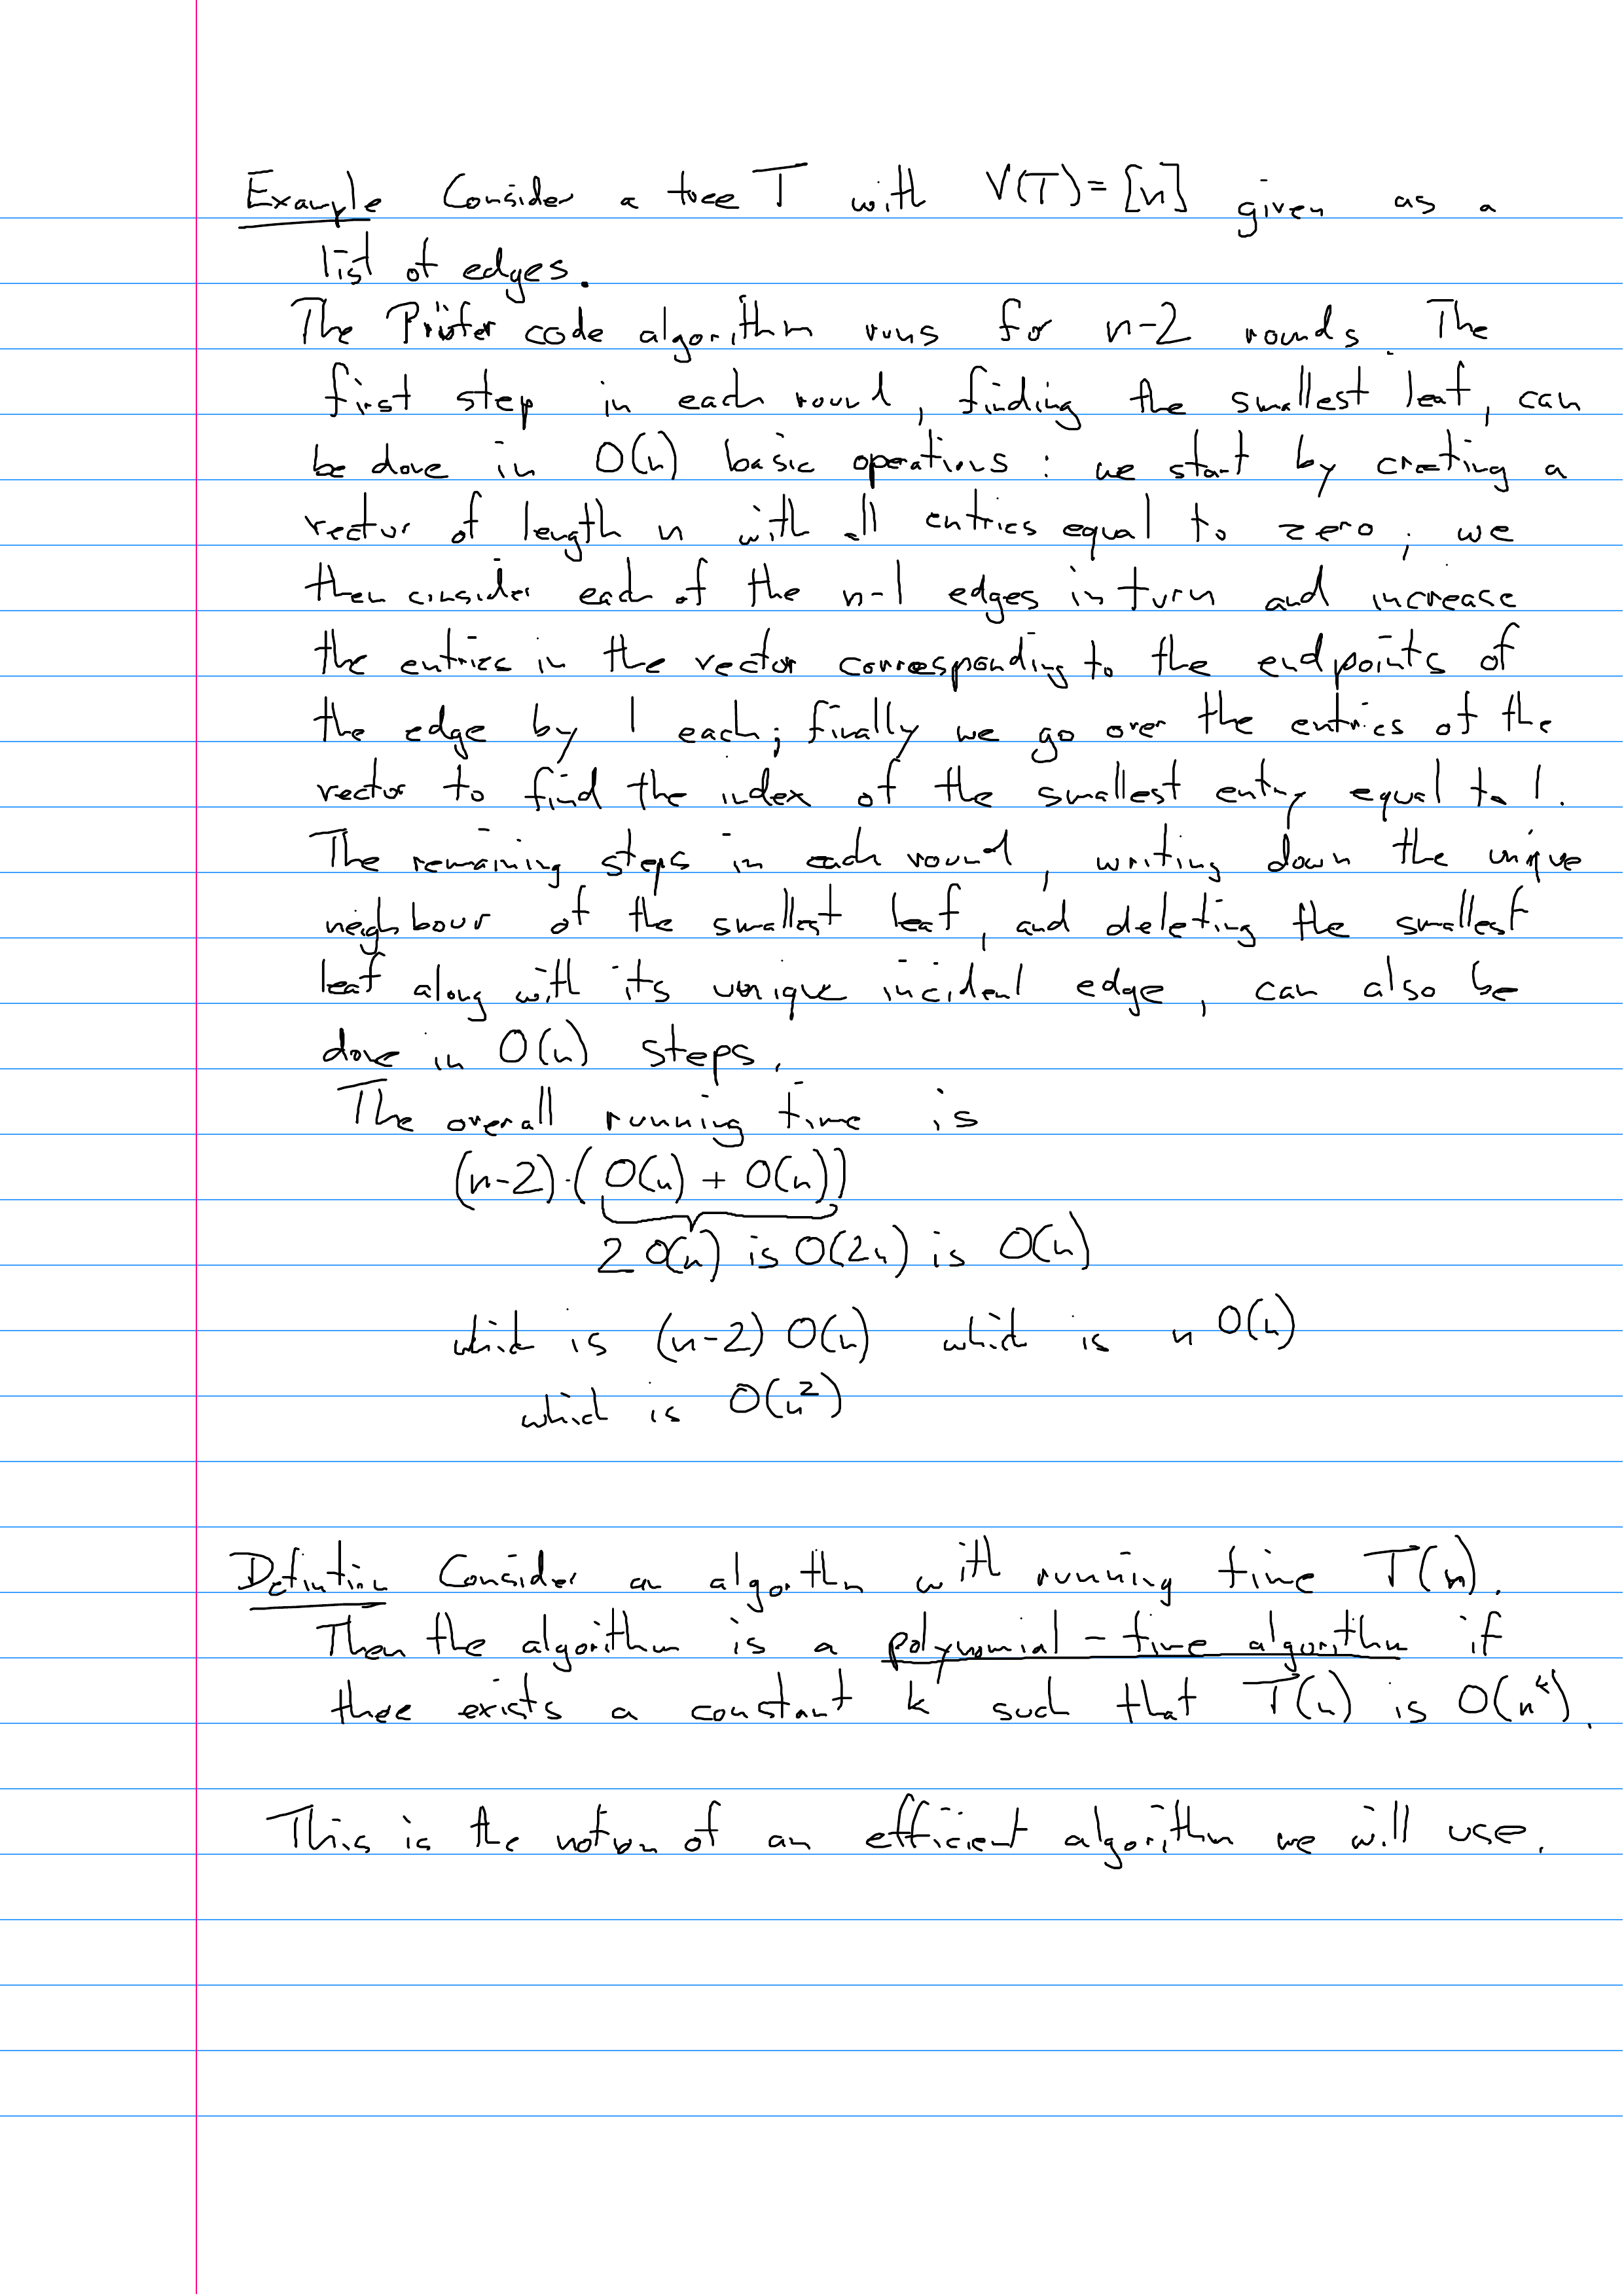 Example Consider a tree T with V(T) = [n] given as a
list of edges.
The Prüfer code algorithm runs for n-2 rounds. The
first step in each round, finding the smallest leaf, can
be done in O(n) basic operations : we start by creating a
vector of length n with all entries equal to zero ; we
then consider each of the n-1 edges in turn and increase
the entries in the vector corresponding to the endpoints of
the edge by 1 each; finally we go over the entries of the
vector to find the index of the smallest entry equal to 1.
The remaining steps in each round, writing down the unique
neighbour of the smallest leaf, and deleting the smallest
leaf along with its unique incident edge, can also be
done in O(n) steps.
The overall running time is
(n-2)·(O(n) + O(n))
2 O(n) is O(2n) is O(n)
which is (n-2) O(n) which is n O(n)
which is O(n²)
Defintion Consider an algorthm with running time T(n).
Then the algorithm is a polynomial-time algorithm if
there exists a constant k such that T(n) is O(nᵏ).
This is the notion of an efficient algorithm we will use.